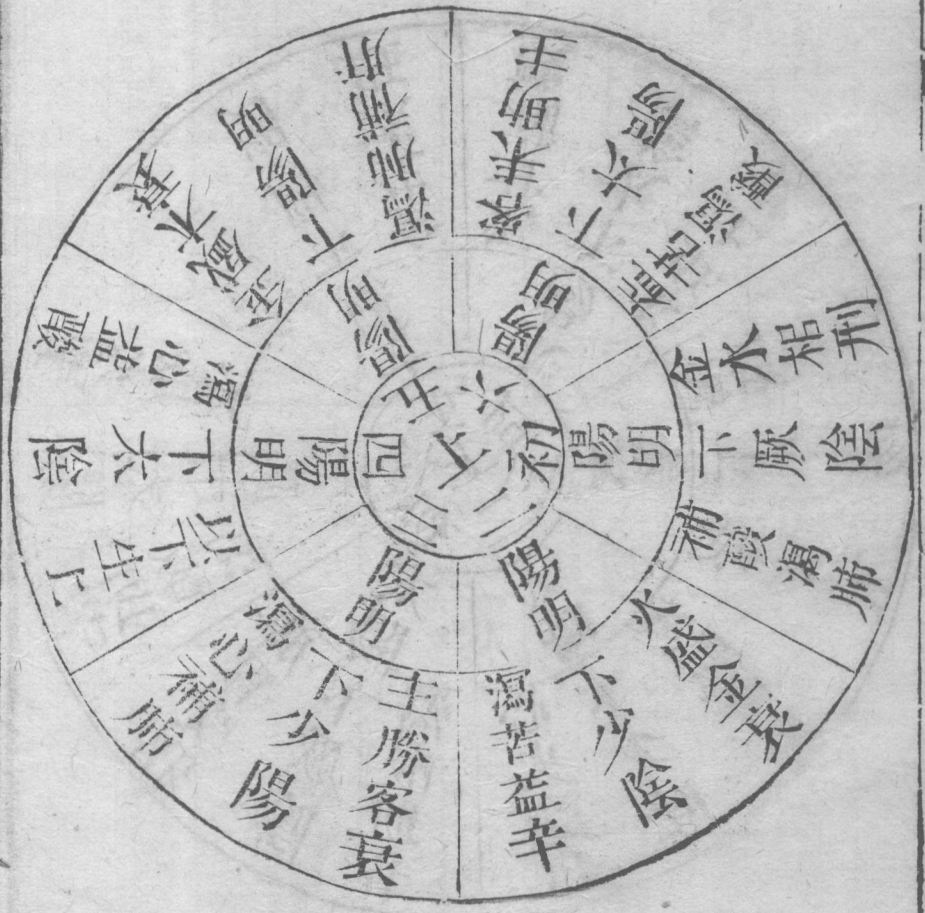 上
初
二
三
四
五
六
陽明
金水相刑
下厥陰
補酸瀉肺
陽明
火盛金衰
下少陰
瀉苦益辛
陽明
主勝客衰
下少陽
瀉心補肺
陽明
以下生上
下太陰
瀉心益酸
陽明
金盛木衰
下陽明
瀉肺補肝
陽明
客來助主
下太陽
苦瀉